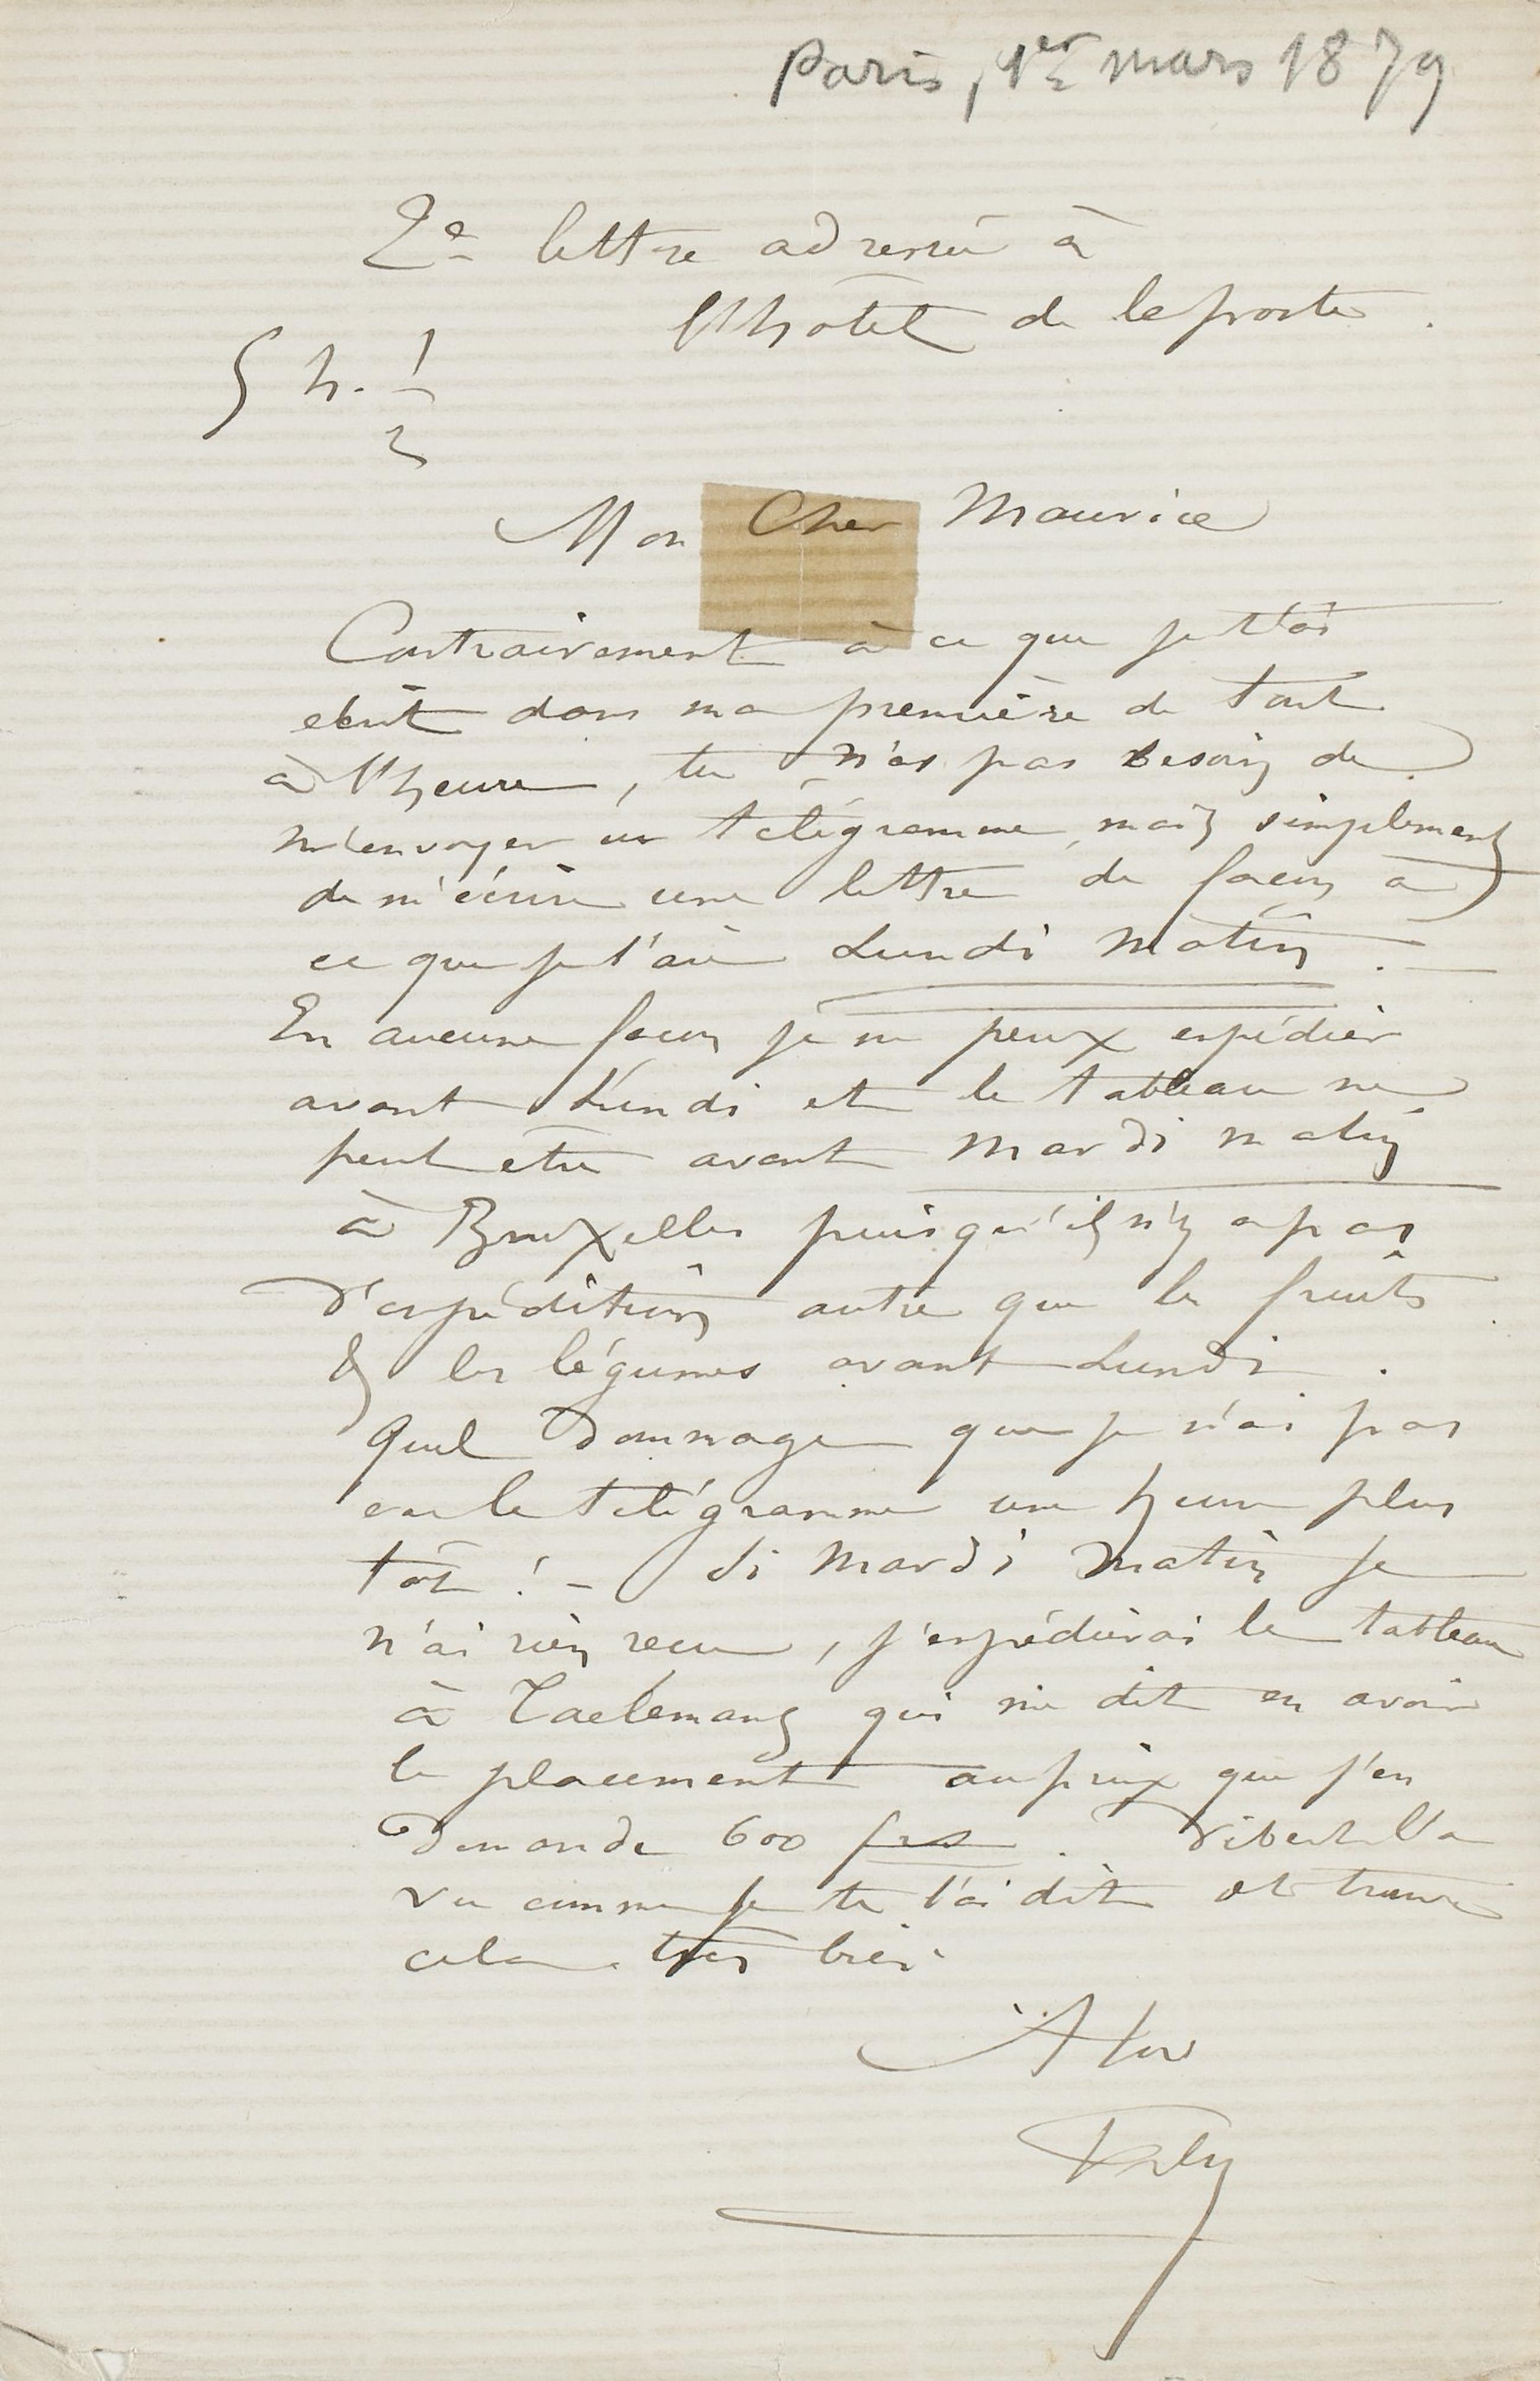 Paris, 1er mars 1879
2e lettre adressée à
l'hôtel de la poste.
5 h. 1/2
Mon Cher Maurice
Contrairement à ce que je t'ai
écrit dans ma première de tout
à l'heure, tu n'as pas besoin de
m'envoyer un télégramme, mais simplement
de m'écrire une lettre de façon à
ce que je l'aie Lundi matin.
En aucune façon je ne peux expédier
avant Lundi et le tableau ne
peut être avant Mardi matin
à Bruxelles puisqu'il n'y a pas
d'expédition autre que les fruits
& les légumes avant Lundi.
Quel dommage que je n'ai pas
eu le télégramme une heure plus
tôt ! - Si Mardi matin je
n'ai rien reçu, j'expédierai le tableau
à Taelemans qui me dit en avoir
le placement au prix que j'en
demande 600 frs. Vibert l'a
vu comme je te l'ai dit et trouve
cela très bien